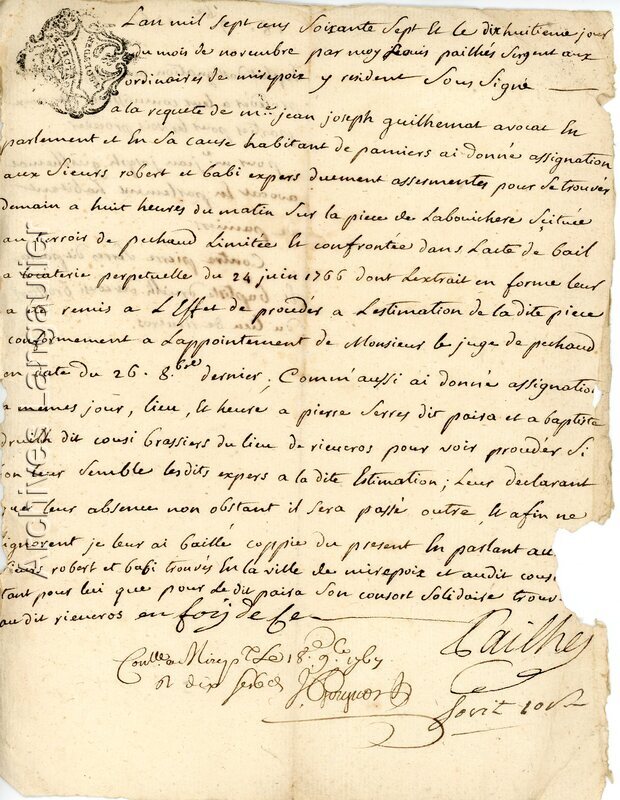 Lan mil sept cens soixante sept et le dixhuitieme jour
du mois de novembre par moy Louis pailhés sergent aux
ordinaires de mirepoix y resident sous signé
a la requete de me jean joseph guilhemat avocat En
parlement et En sa cause habitant de pamiers ai donné assignation
aux sieurs robert et babi expers duement assermentes pour se trouvér
demain a huit heures du matin sur la piece de Labouichere scituée
au terroir de pechaud Limitée et confrontée dans Lacte de bail
a locaterie perpetuelle du 24 juin 1766 dont Lextrait en forme leur
a eté remis a L'Effet de procéder a Lestimation de la dite piece
conformement a Lappointement de Monsieur le juge de pechaud
en date du 26. 8.bre dernier; Comm'aussi ai donné assignation
a mêmes jour, lieu, et heure a pierre serres dit paira et a baptiste
druilh dit cousi brassiers du lieu de rieucros pour voir proceder si
bon leur semble lesdits expers a la dite Estimation; Leur declarant
que leur absence non obstant il sera passé outre, et afin ne
lignorent je leur ai baillé coppie du present En parlant au
sieurs robert et babi trouvés En la ville de mirepoix et audit cousi
tant pour lui que pour le dit paira son consort solidaire trouv
au dit rieucros en foy de ce
Pailhés
Conllé a Mirepx Le 18e 9bre 1767
Rt dix
Archives Langautier